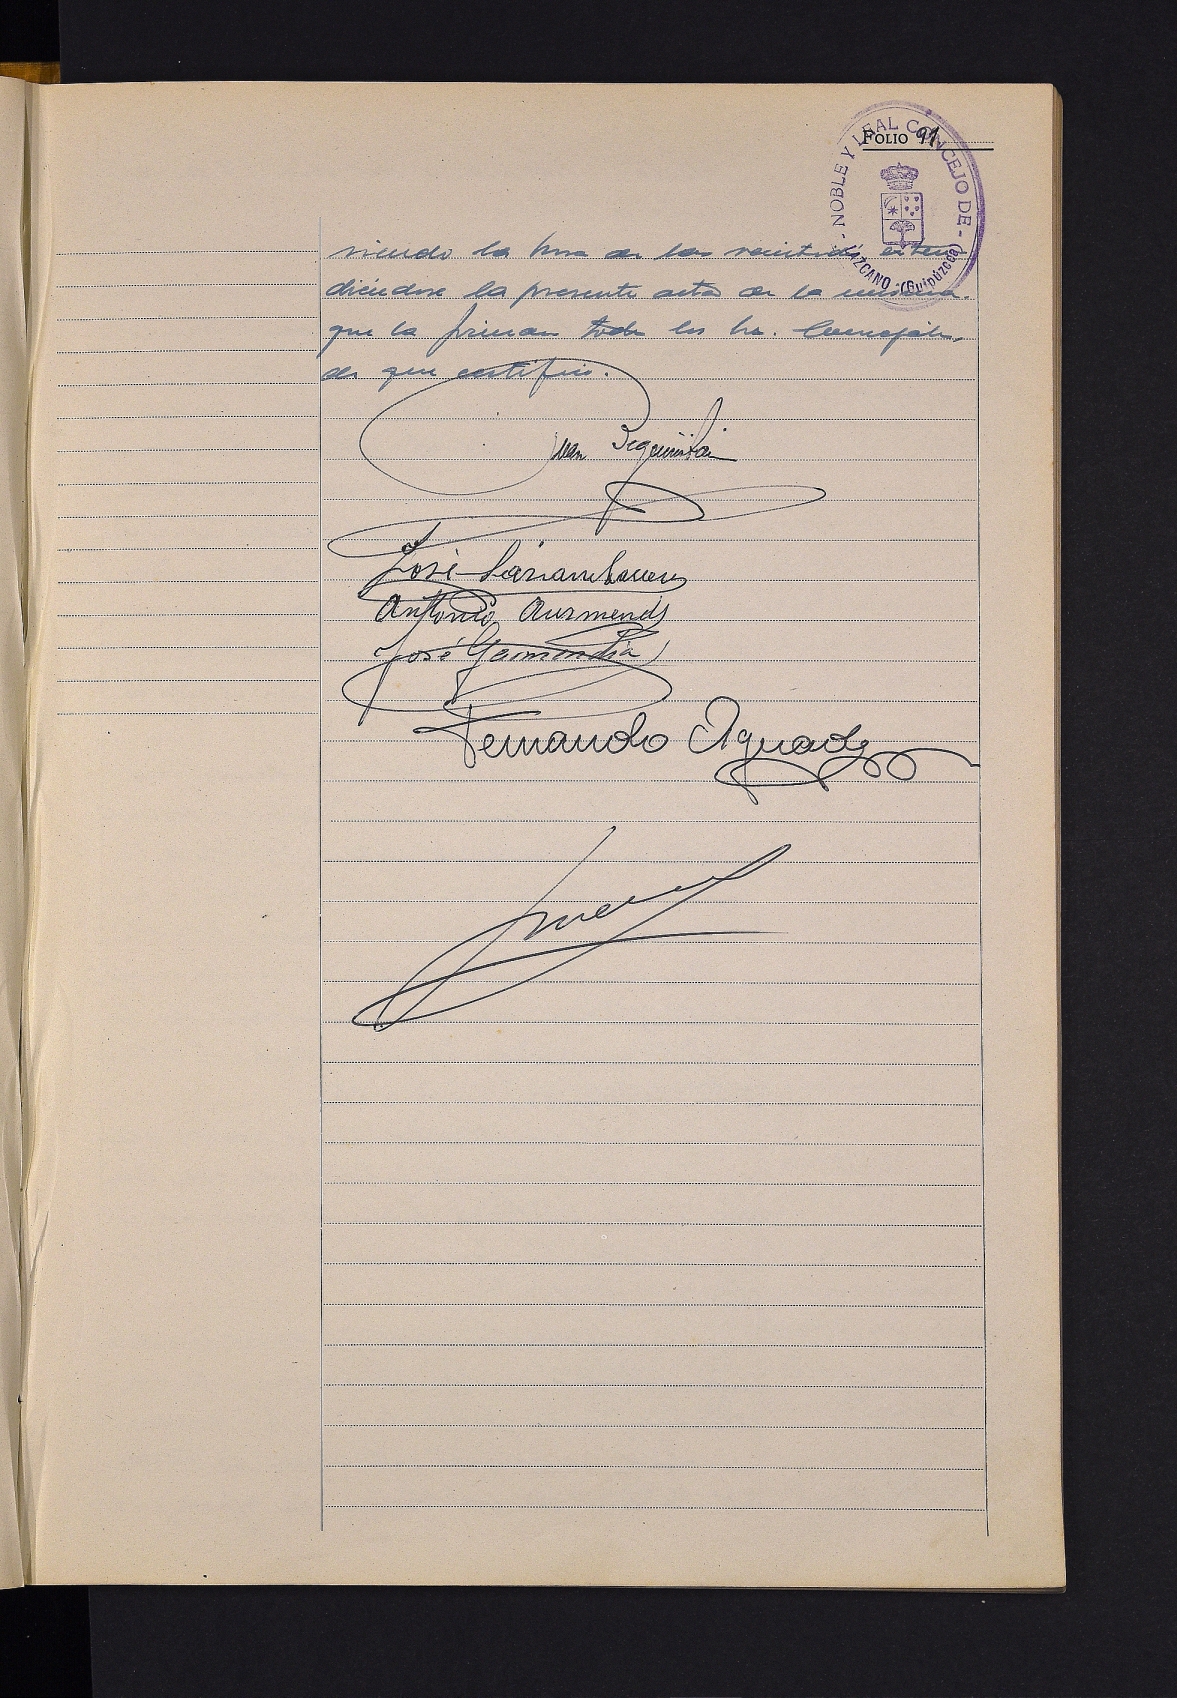 FOLIO 91
- NOBLE Y LEAL CONCEJO DE -
LAZCANO - (Guipúzcoa)
siendo la hora de las veintidós exten-
diéndose la presente acta de la misma.
que la firman todos los Sres. Concejales,
de que certifico.
Juan
José
Antonio Aurmendi
José Garmendia
Fernando Aguado